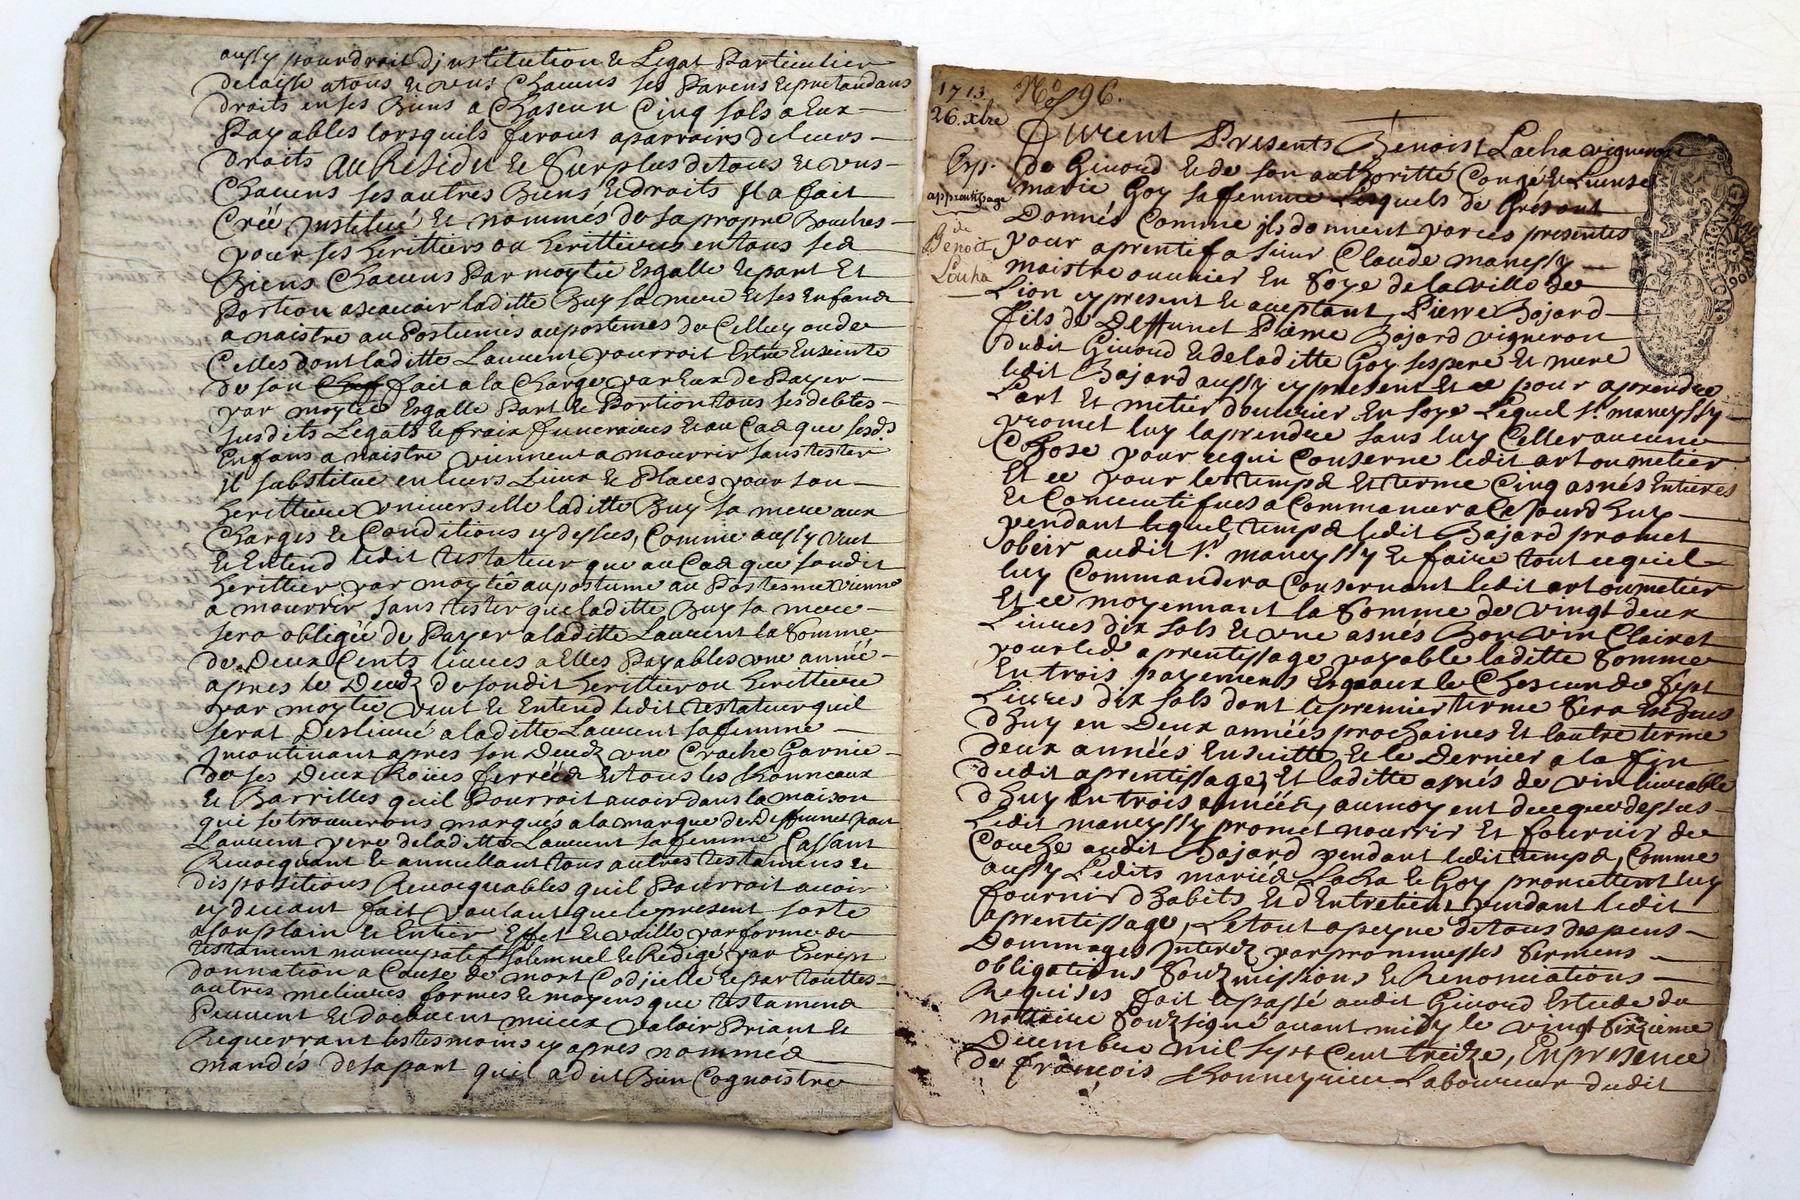 aussy pour droit d'institution & Legat Particulier
delaisse a tous & uns Chacuns ses Parens & pretandans
droits en ses Biens a Chascun Cinq sols a Eux
Payables lorsquils ferons aparroirs de leurs
droits au Residu & Surplus de tous & uns
Chacuns ses autres Biens & droits Il a fait
Créé Institué Et nommés de sa propre Bouches
pour ses herittiers ou herittieres en tous sed
Biens Chacuns Par moytié Esgalle & part Et
Portion ascauoir laditte Buy sa mere & ses Enfand
a naistre au Postumes aupostemes de Celluy ou de
Celles dont laditte Laurent pourroit Estre Enseinte
de son fait a la Charge par Eux de Payer
par moytié Esgalle Part & Portion tous ses debtes
susdits Legats & fraix funeraires & au Cad que sesds
Enfans a naistre viennent a mourrir sans tester
Il substitue en leurs Lieux & Places pour son
herittiere vniverselle laditte Buy sa mere aux
Charges & Conditions cy dessus, Comme aussy veut
& Entend ledit testateur que au Cad que sondit
herittier par moytié au postume au Postesme vienne
a mourrir sans tester que laditte Buy sa mere
sera obligée de Payer a laditte Laurent la Somme
de Deux Cents liures a Elles Payables une année
apres le Decedz de sondit herittier ou herittiere
par moytié veut & Entend ledit testateur quil
serat Desliuré a laditte Laurent sa femme
Incontinant apres son Decedz une Crache Garnie
de ses Deux Roües ferrééd & tous les thonneaux
& Barrilles quil Pourroit auoir dans la maison
qui se trouverons marqués a la marque de Deffunet
Laurent pere de laditte Laurent sa femme Cassant
Reuocquant & annullant tous autres testamens &
dispositions Reuocquables quil Pourroit auoir
cy deuant fait voulant que le present sorte
a son plain & Entier Effet & vaille par forme de
testament nuncupatif solemnel & Redigé par Escript
donnation a Cause de mort Codjcille & par touttes
autres melieures formes & moyens que testamend
Peuuent & doebuent mieux valoir Priant &
Requerrant les tesmoins cy apres nomméd
mandés de sa part quil a dit Bien Cognoistre
1713 No 96.
26. xbre
Exp.
apprentissage
de
Benoit
Lacha
Furent Presents Benoist Lacha vigneron
de Giuord & de son authoritté Congé & Lisense
marie Goy sa femme Lesquels de Gré sont
Donnés Comme ils donnent par ces presentes
pour aprentif a sieur Claude maneyssy
maistre ouurier En Soye de la ville de
Lion cy present & aceptant, Pierre Bojard
fils de Deffunct Pierre Bojard vigneron
dudit Giuord & de laditte Goy ses pere Et mere
ledit Bojard aussy cy present Et ce pour aprendre
L'art Et metier d'ouurier En Soye Lequel Sr. maneyssy
promet luy laprendre sans luy Celler aucune
Chose pour ce qui Conserne ledit art ou metier
Et ce pour le tempd Et terme Cinq asnés Entieres
& Consecutifues a Commancer a Ce Jourd huy
pendant lequel tempd ledit Bojard promet
obeir audit Sr. maneyssy & faire tout ce quil
luy Commandera Consernant ledit art ou metier
Et ce moyennant la Somme de vingt deux
Liures dix sols & vne asnés Bon vin Clairet
pour led aprentissage payable laditte Somme
En trois payements Esgaux le Chescun de sept
Liures dix sols dont le premier terme Sera
d'huy en Deux années prochaines Et lautre terme
deux années Ensuitte Et le Dernier a la fin
dudit aprentissage, Et laditte asnés de vin liurable
d'huy En trois année, aumoyent de ce que dessus
Ledit maneyssy promet nourrir Et fournir de
Couche audit Bojard pendant ledit tempd, Comme
aussy Lesdits mariéd Lacha & Goy promettent luy
fournir d'habits Et d'Entretient pendant ledit
aprentissage, Le tout a peyne de tous despens
Dommages Interez par promesses Sermens
obligations Soubzmissions & Renonciations
Requises fait & passé audit Giuord Estude du
nottaire Soubzsigné auant midy le vingt Sixzieme
Decembre mil sept Cent treize, En presence
de françois thonneyrieu Laboureur dudit